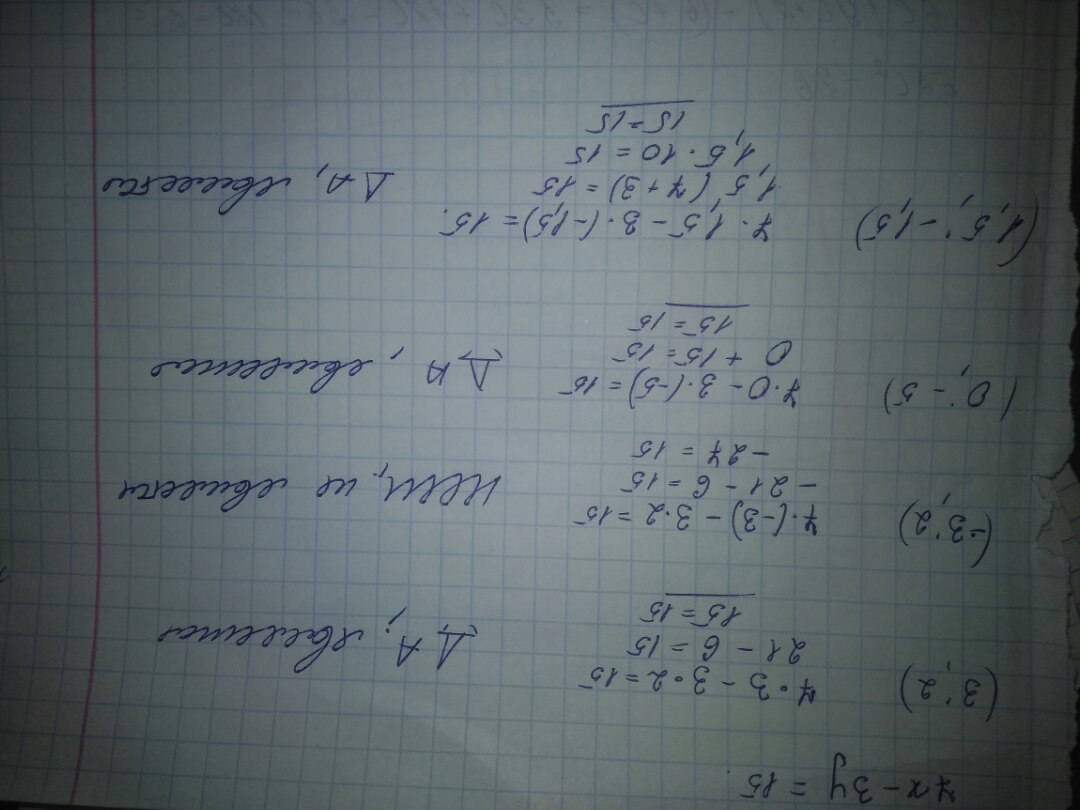 7x - 3y = 15.
(3; 2) 7·3 - 3·2 = 15
21 - 6 = 15
15 = 15
ДА, является
(-3; 2) 7·(-3) - 3·2 = 15
-21 - 6 = 15
-27 = 15
Нет, не является
(0; -5) 7·0 - 3·(-5) = 15
0 + 15 = 15
15 = 15
ДА, является
(1,5; -1,5) 7·1,5 - 3·(-1,5) = 15.
1,5 (7+3) = 15
1,5·10 = 15
15 = 15
ДА, является